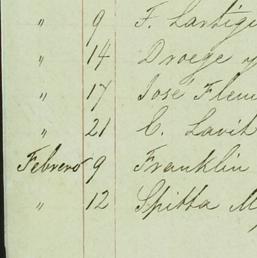 " 9 F. Lartigu
" 14 Droege y
" 17 José Flem
" 21 C. Lavit
Febrero 9 Franklin
" 12 Spitta M